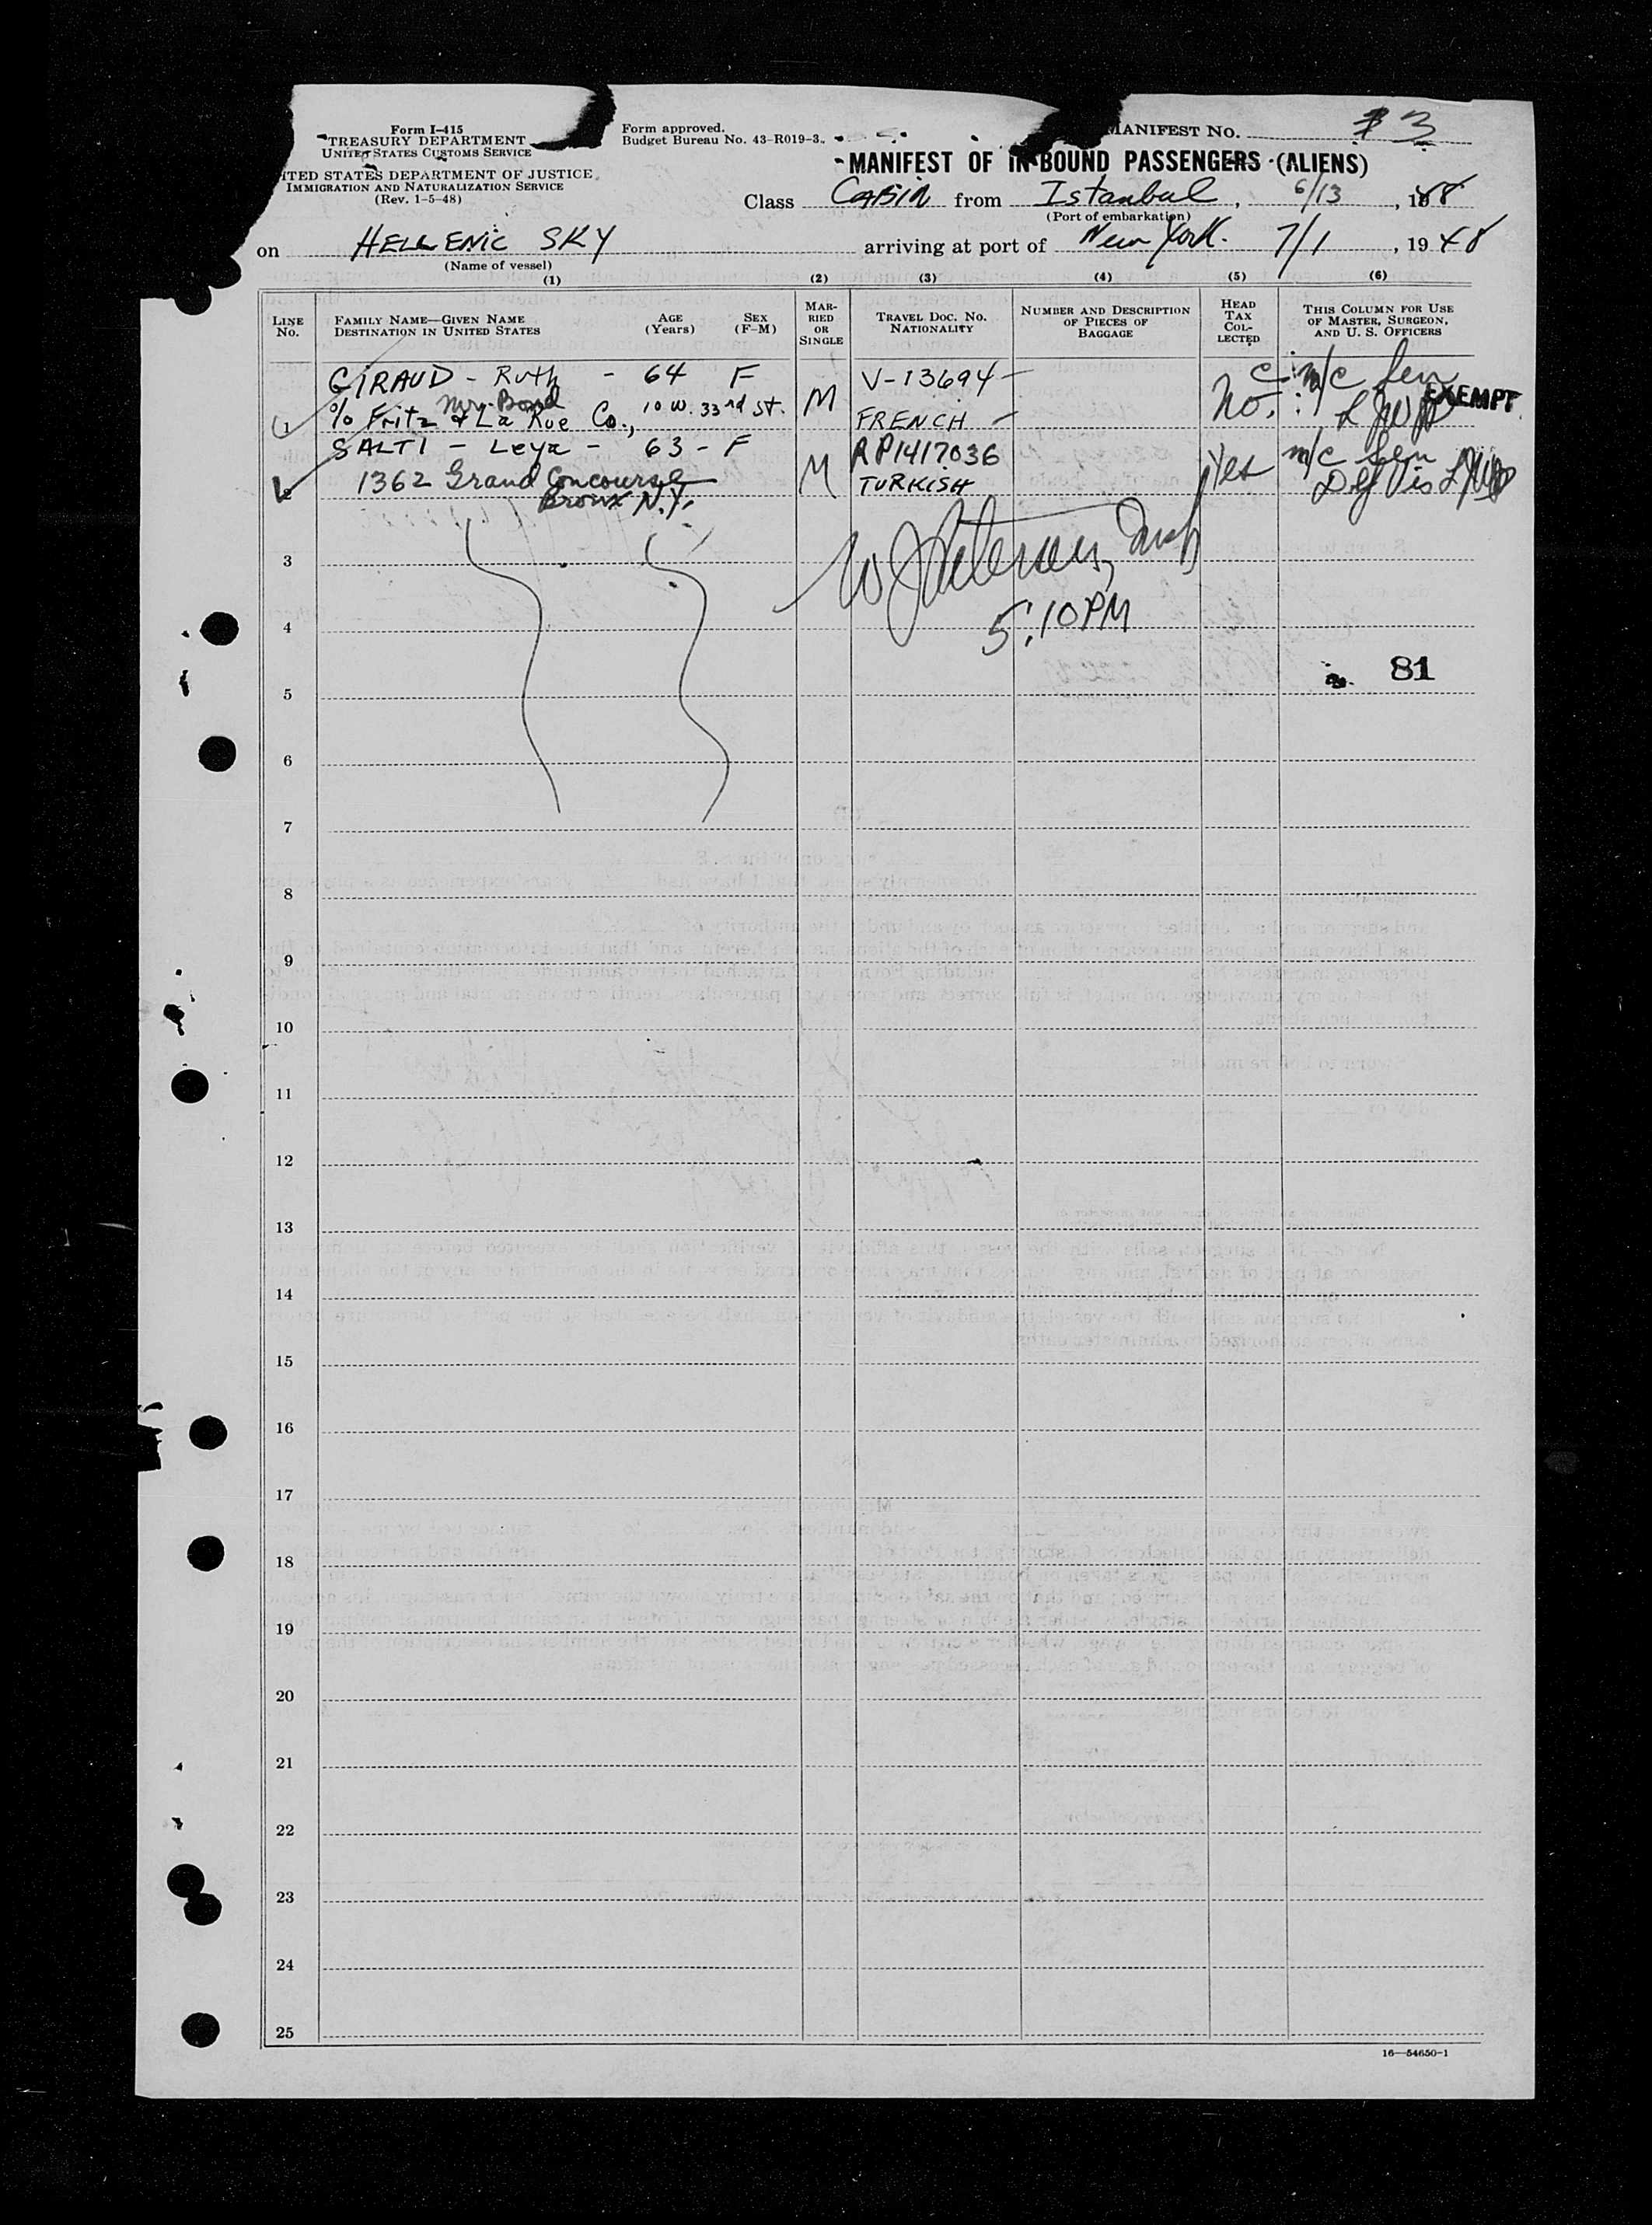 Form I-415
TREASURY DEPARTMENT
UNITED STATES CUSTOMS SERVICE
ITED STATES DEPARTMENT OF JUSTICE
IMMIGRATION AND NATURALIZATION SERVICE
(Rev. 1-5-48)
Form approved.
Budget Bureau No. 43-R019-3.
MANIFEST NO. 3
MANIFEST OF IN-BOUND PASSENGERS (ALIENS)
Class CABIN from Istanbul, 6/13, 1948
(Port of embarkation)
on HELLENIC SKY arriving at port of New York. 7/1, 1948
(Name of vessel)
(1) (2) (3) (4) (5) (6)
LINE No.
FAMILY NAME—GIVEN NAME
DESTINATION IN UNITED STATES
AGE (Years)
SEX (F-M)
MARRIED OR SINGLE
TRAVEL DOC. NO.
NATIONALITY
NUMBER AND DESCRIPTION OF PIECES OF BAGGAGE
HEAD TAX COLLECTED
THIS COLUMN FOR USE OF MASTER, SURGEON, AND U. S. OFFICERS
GIRAUD - Ruth - 64 F M V-13694 - No. m/c
Mrs. Bond
1 % Fritz & La Rue Co., 10 W. 33rd St. FRENCH - EXEMPT
SALTI - Leya - 63 - F M RP1417036 Yes m/c
2 1362 Grand Concourse TURKISH
Bronx N.Y.
3
5:10 PM
4
81
5
6
7
8
9
10
11
12
13
14
15
16
17
18
19
20
21
22
23
24
25
16—54650-1